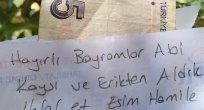 5
TÜRKİYE
Hayırlı Bayramlar Abi
Kayısı ve Erikten Aldık
Helal et Eşim Hamile